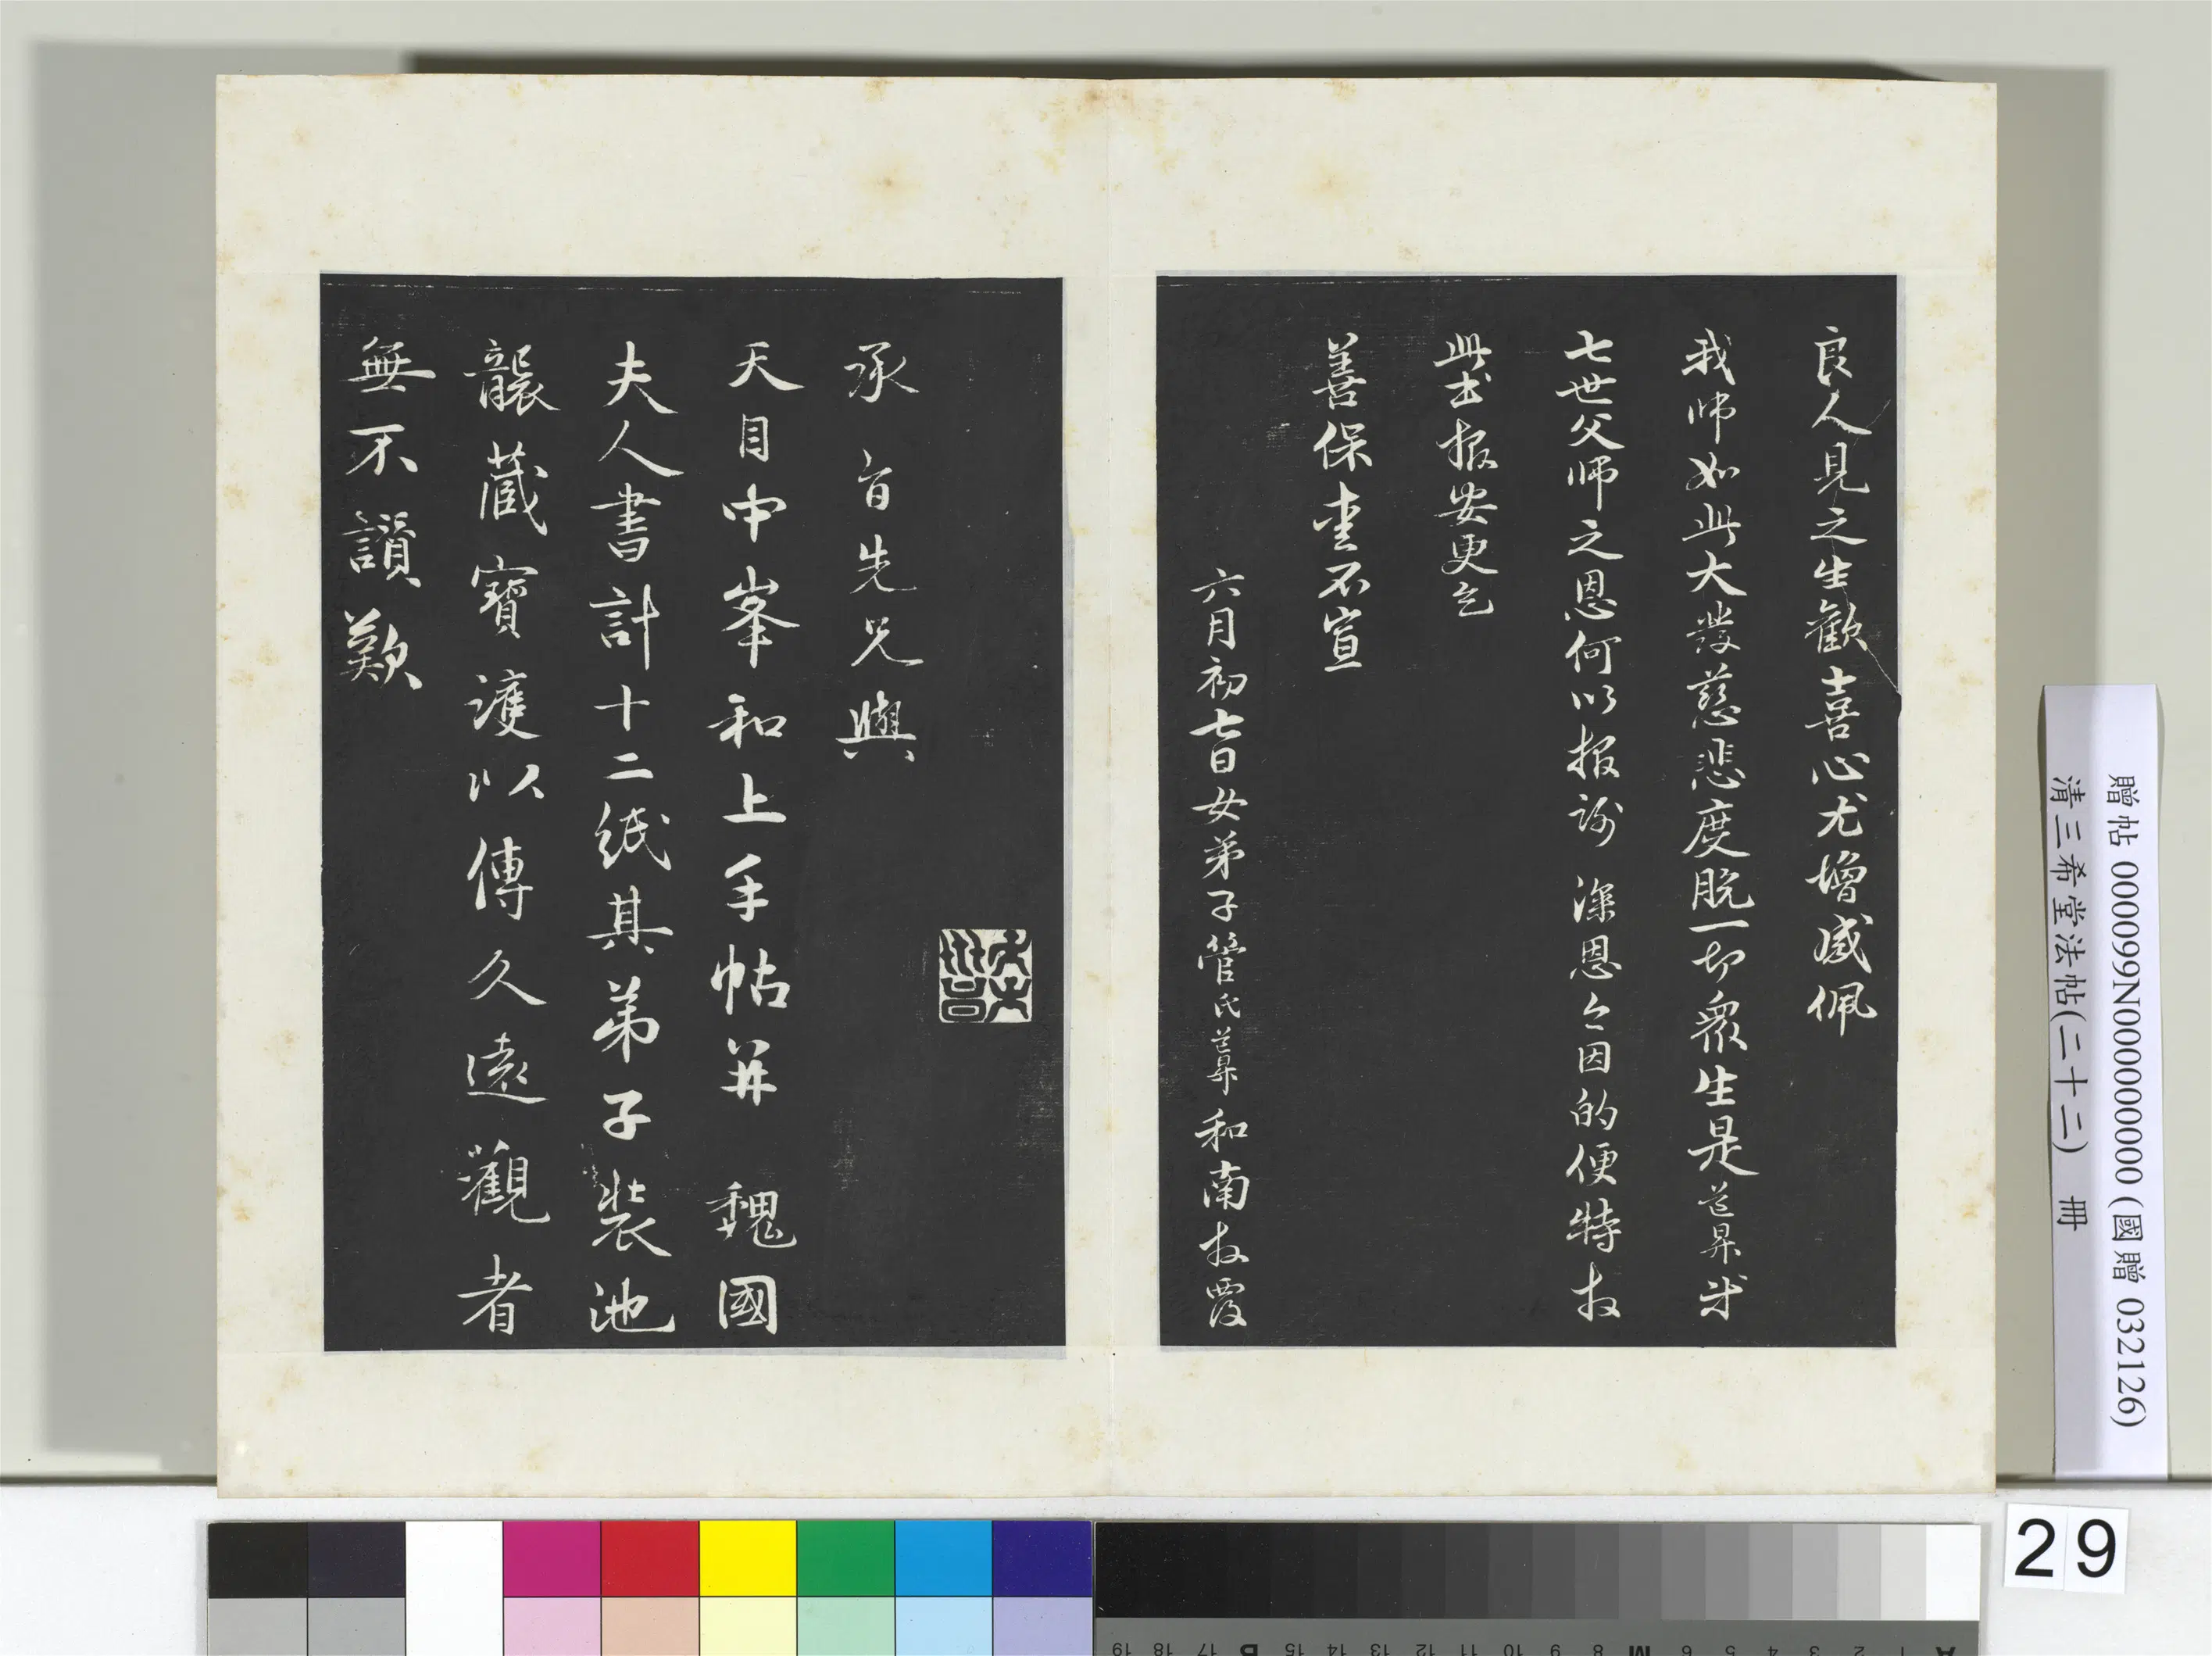 良人見之生歡喜心尤增感佩
我師如此大發慈悲度脫一切衆生是道昇
七世父師之恩何以报謝 深恩今因的便特拜
此书报安更乞
善保重不宣
六月初七日女弟子管氏道昇和南拜覆
承旨先兄與
天目中峯和上手帖并 魏國
夫人書計十二紙其弟子裝池
襲藏寶護以傳久遠觀者
無不讃歎
贈帖 000099N000000000 (國贈 032126)
清三希堂法帖(二十二) 冊
29
19 18 17 B 16 15 14 13 12 11 10 9 8 M 7 6 5 4 3 2 1 A